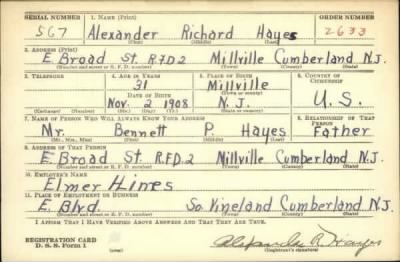 SERIAL NUMBER 1. NAME (Print) ORDER NUMBER
567 Alexander Richard Hayes 2633
(First) (Middle) (Last)
2. ADDRESS (Print)
E. Broad St. R.F.D2 Millville Cumberland N.J.
(Number and street or R. F. D. number) (Town) (County) (State)
3. TELEPHONE 4. AGE IN YEARS 5. PLACE OF BIRTH 6. COUNTRY OF CITIZENSHIP
31 Millville
DATE OF BIRTH (Town or county)
Nov. 2 1908 N.J. U.S.
(Exchange) (Number) (Mo.) (Day) (Yr.) (State or country)
7. NAME OF PERSON WHO WILL ALWAYS KNOW YOUR ADDRESS 8. RELATIONSHIP OF THAT PERSON
Mr. Bennett P. Hayes Father
(Mr., Mrs., Miss) (First) (Middle) (Last)
9. ADDRESS OF THAT PERSON
E. Broad St. R.F.D2 Millville Cumberland N.J.
(Number and street or R. F. D. number) (Town) (County) (State)
10. EMPLOYER'S NAME
Elmer Hines
11. PLACE OF EMPLOYMENT OR BUSINESS
E. Blvd. So. Vineland Cumberland N.J.
(Number and street or R. F. D. number) (Town) (County) (State)
I AFFIRM THAT I HAVE VERIFIED ABOVE ANSWERS AND THAT THEY ARE TRUE.
REGISTRATION CARD
D. S. S. Form 1
Alexander R. Hayes
(Registrant's signature)